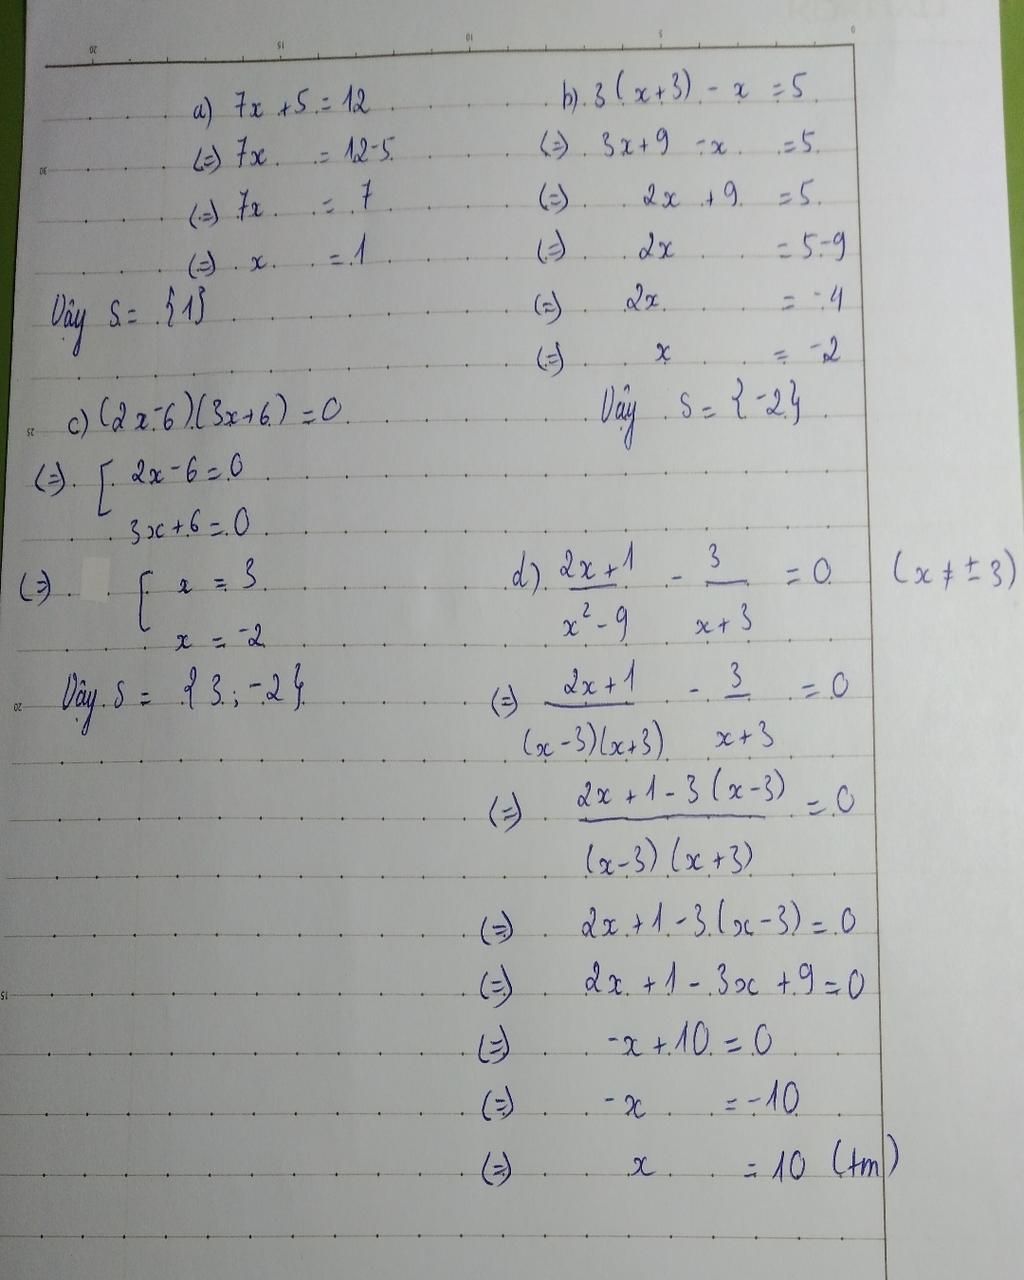 a) 7x + 5 = 12
(=) 7x = 12-5
(=) 7x = 7
(=) x = 1
Vậy S = {1}
b) 3(x+3) - x = 5
(=) 3x+9 -x = 5
(=) 2x + 9 = 5
(=) 2x = 5-9
(=) 2x = -4
(=) x = -2
Vậy S = {-2}
c) (2x-6)(3x+6) = 0
(=) [ 2x-6=0
3x+6=0
(=) [ x = 3
x = -2
Vậy S = {3; -2}
d) 2x+1 / x²-9 - 3 / x+3 = 0 (x ≠ ±3)
(=) 2x+1 / (x-3)(x+3) - 3 / x+3 = 0
(=) 2x+1-3(x-3) / (x-3)(x+3) = 0
(=) 2x+1-3(x-3) = 0
(=) 2x+1-3x+9=0
(=) -x+10=0
(=) -x = -10
(=) x = 10 (tm)